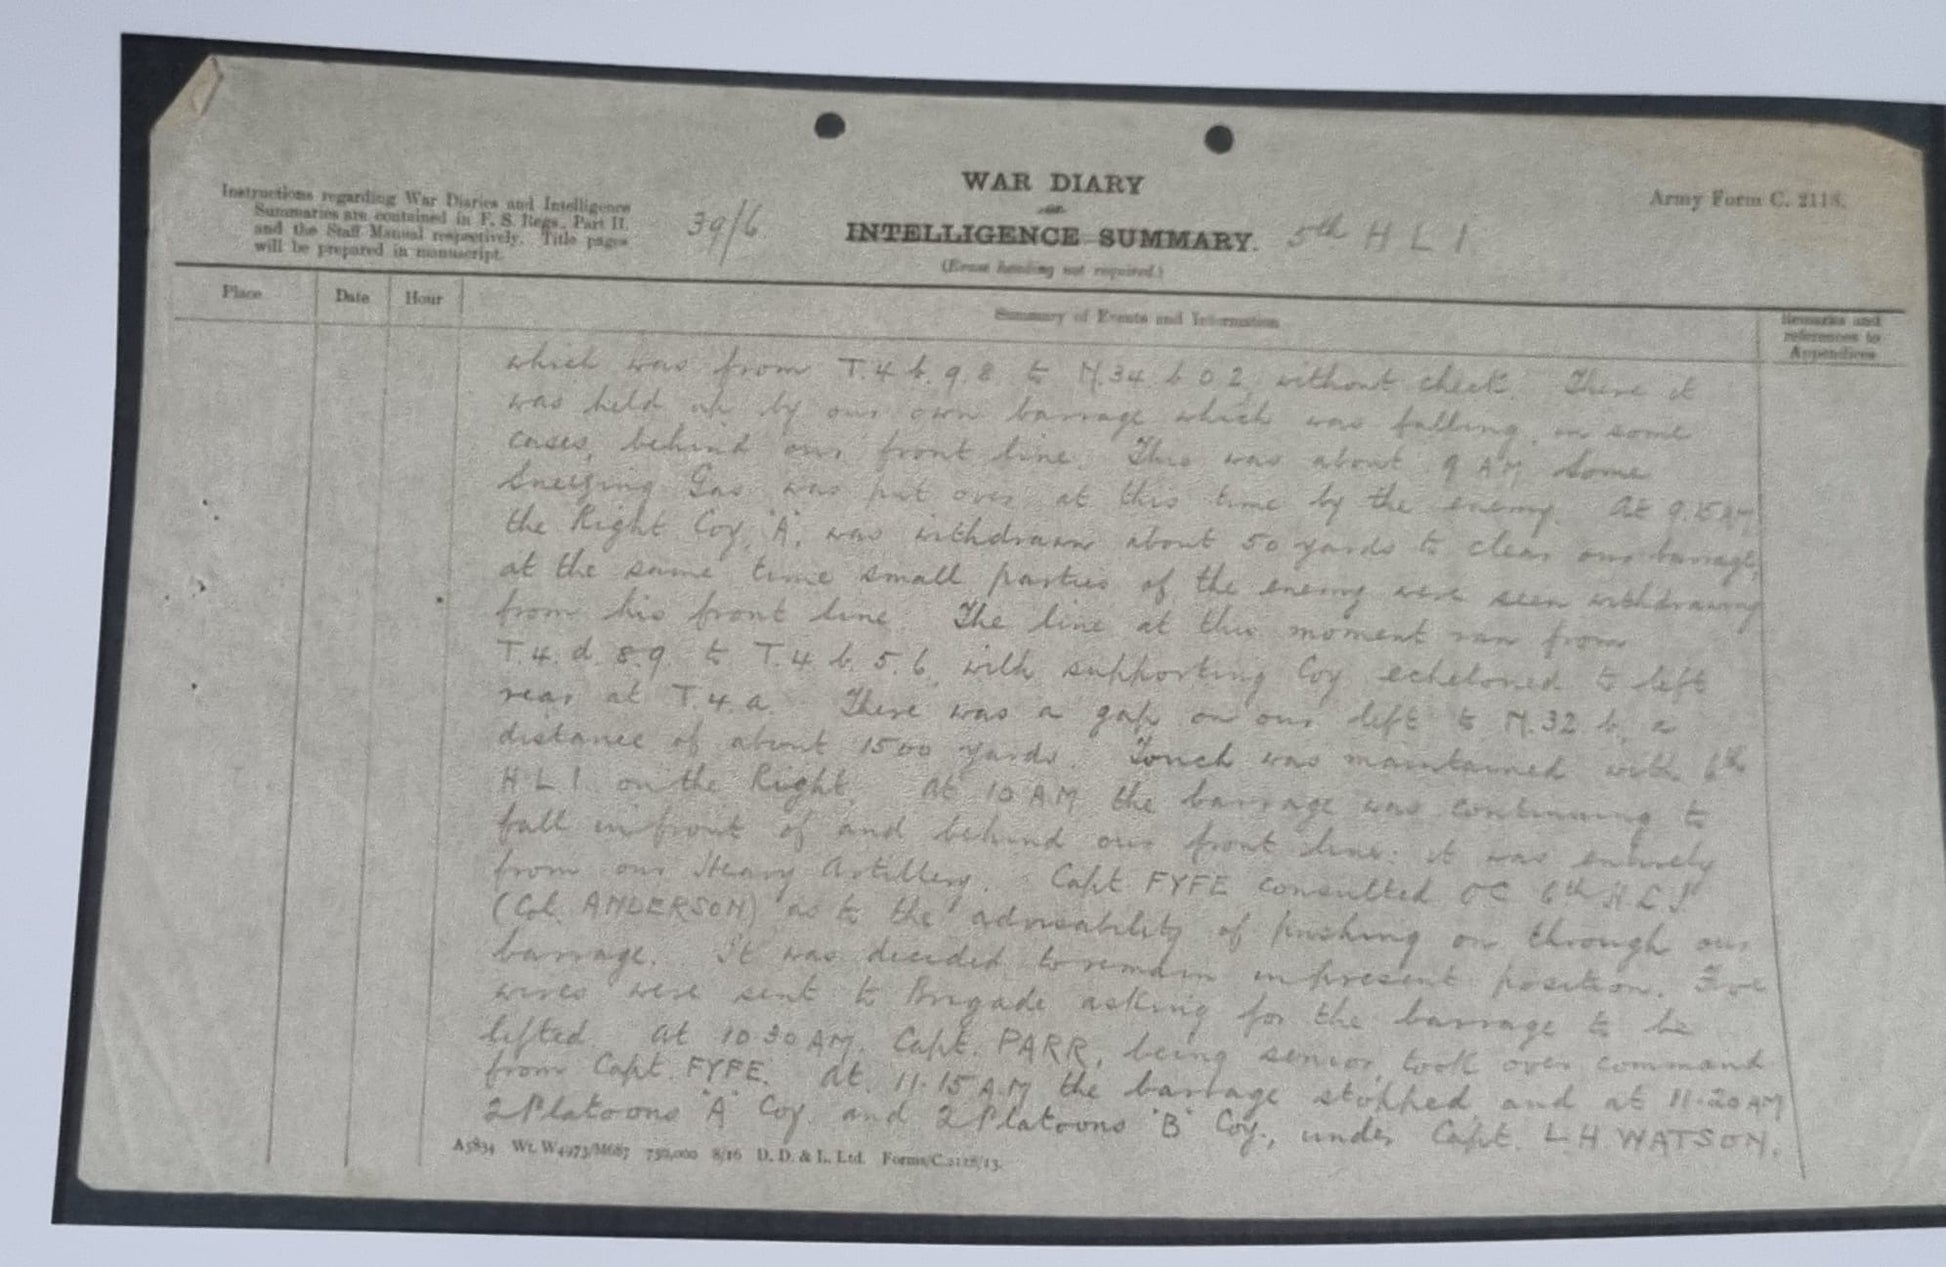 Instructions regarding War Diaries and Intelligence
Summaries are contained in F. S. Regs., Part II.
and the Staff Manual respectively. Title pages
will be prepared in manuscript.
39/6.
WAR DIARY
or
INTELLIGENCE SUMMARY.
(Erase heading not required.)
5th H L I
Army Form C. 2118.
Place
Date
Hour
Summary of Events and Information
Remarks and
references to
Appendices
which was from T.4.b.9.8 to M.34.b.0.2, without check. There it
was held up by our own barrage which was falling, in some
cases, behind our front line. This was about 9 AM. Some
Sneezing Gas was put over at this time by the enemy. At 9.15 AM
the Right Coy, 'A', was withdrawn about 50 yards to clear our barrage,
at the same time small parties of the enemy were seen withdrawing
from his front line. The line at this moment ran from
T.4.d.8.9 to T.4.b.5.6, with supporting Coy echeloned to left
rear at T.4.a. There was a gap on our left to M.32.b, a
distance of about 1500 yards. Touch was maintained with 6th
H L I on the Right. At 10 A.M the barrage was continuing to
fall in front of and behind our front line: it was entirely
from our Heavy Artillery. Capt FYFE consulted OC 6th H L I
(Col. ANDERSON) as to the advisability of pushing on through our
barrage. It was decided to remain in present position. Five
wires were sent to Brigade asking for the barrage to be
lifted. At 10.30 AM. Capt. PARR, being senior, took over command
from Capt. FYFE. At 11.15 A.M the barrage stopped and at 11.20 AM
2 Platoons 'A' Coy. and 2 Platoons 'B' Coy., under Capt. L H WATSON.
A5834 Wt. W4973/M687 750,000 8/16 D. D. & L. Ltd. Forms/C.2118/13.